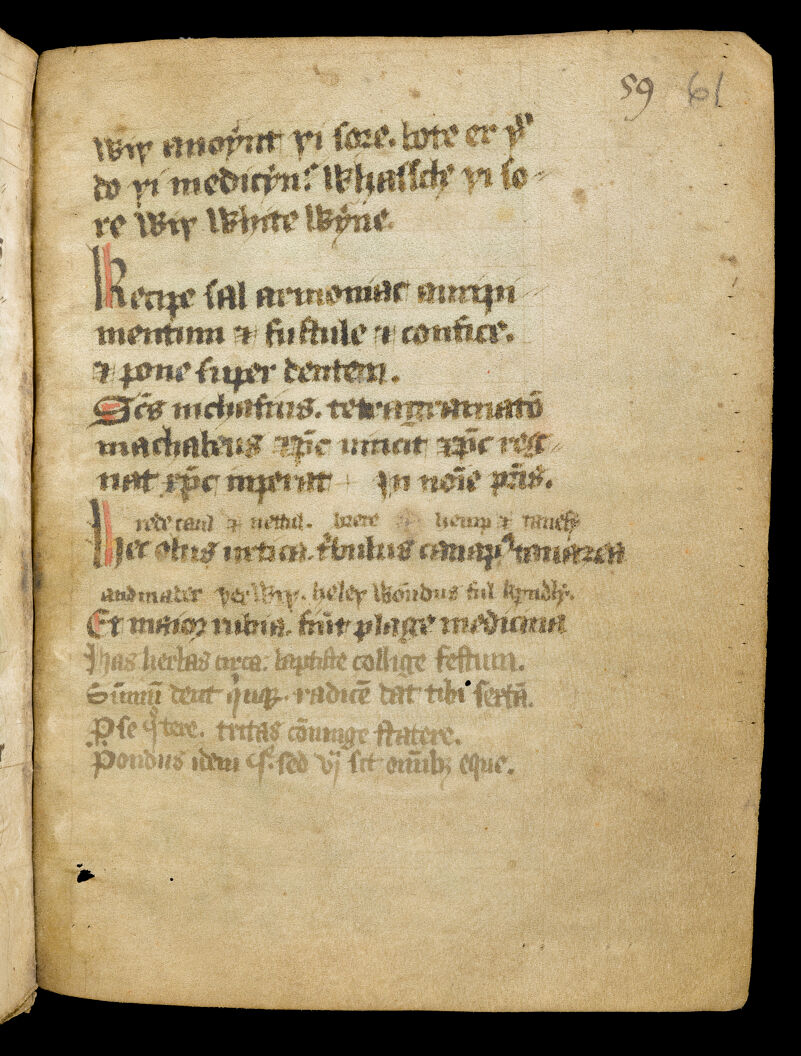 59 61
wiþ anoynt þi sore. bote er þu
do þi medicyn: Whassch þi so-
re Wiþ White Wyne.
Recipe sal armoniac auripi
mentum ⁊ fustule ⁊ confice.
⁊ pone super dentem.
Scs nichasius. tetragramatō
machabeus xp̄c uincit xp̄c reg-
nat xp̄c inperat + In noīe pr̄is.
rede caul ⁊ nettul. brere hemp ⁊ tansey
Hec olus urtica. t̄bulus canap' tanazea
and mader þer Wiþ. heleþ Wondus ful kyndly.
Et maior rubia. sūt plage medicina
Has herbas circa: baptiste collige festum.
Sūmū dent q̄uqȝ. radicē dat tibi sexta.
P se tere. tritas cōiunge statere.
Pondus idem sed vj sit om̄ibȝ eque.